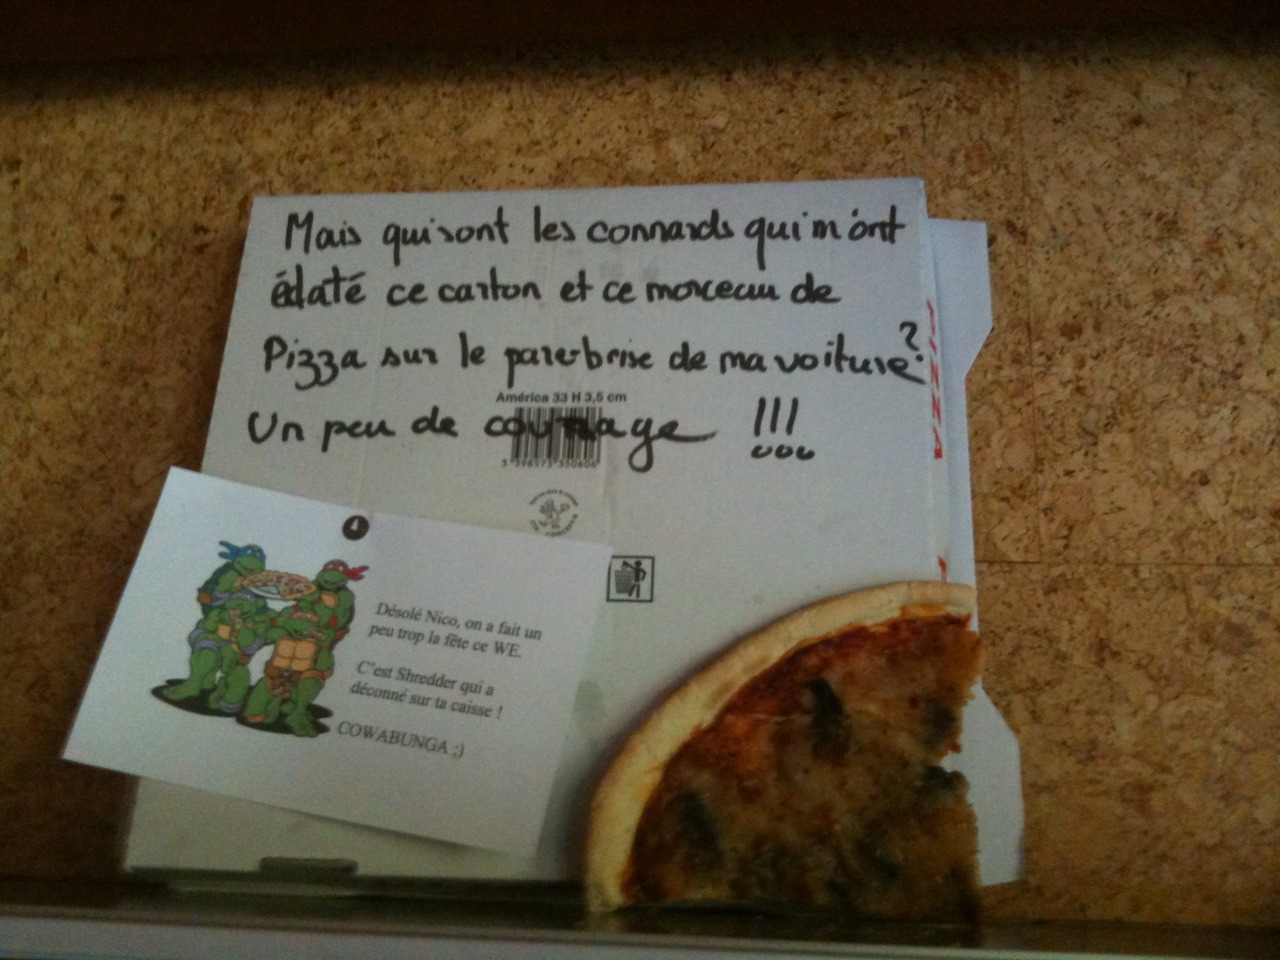 Mais qui sont les connards qui m'ont
éclaté ce carton et ce morceau de
Pizza sur le parebrise de ma voiture ?
América 33 H 3,5 cm
Un peu de courage !!!
PIZZA
Désolé Nico, on a fait un
peu trop la fête ce WE.
C'est Shredder qui a
déconné sur ta caisse !
COWABUNGA ;)